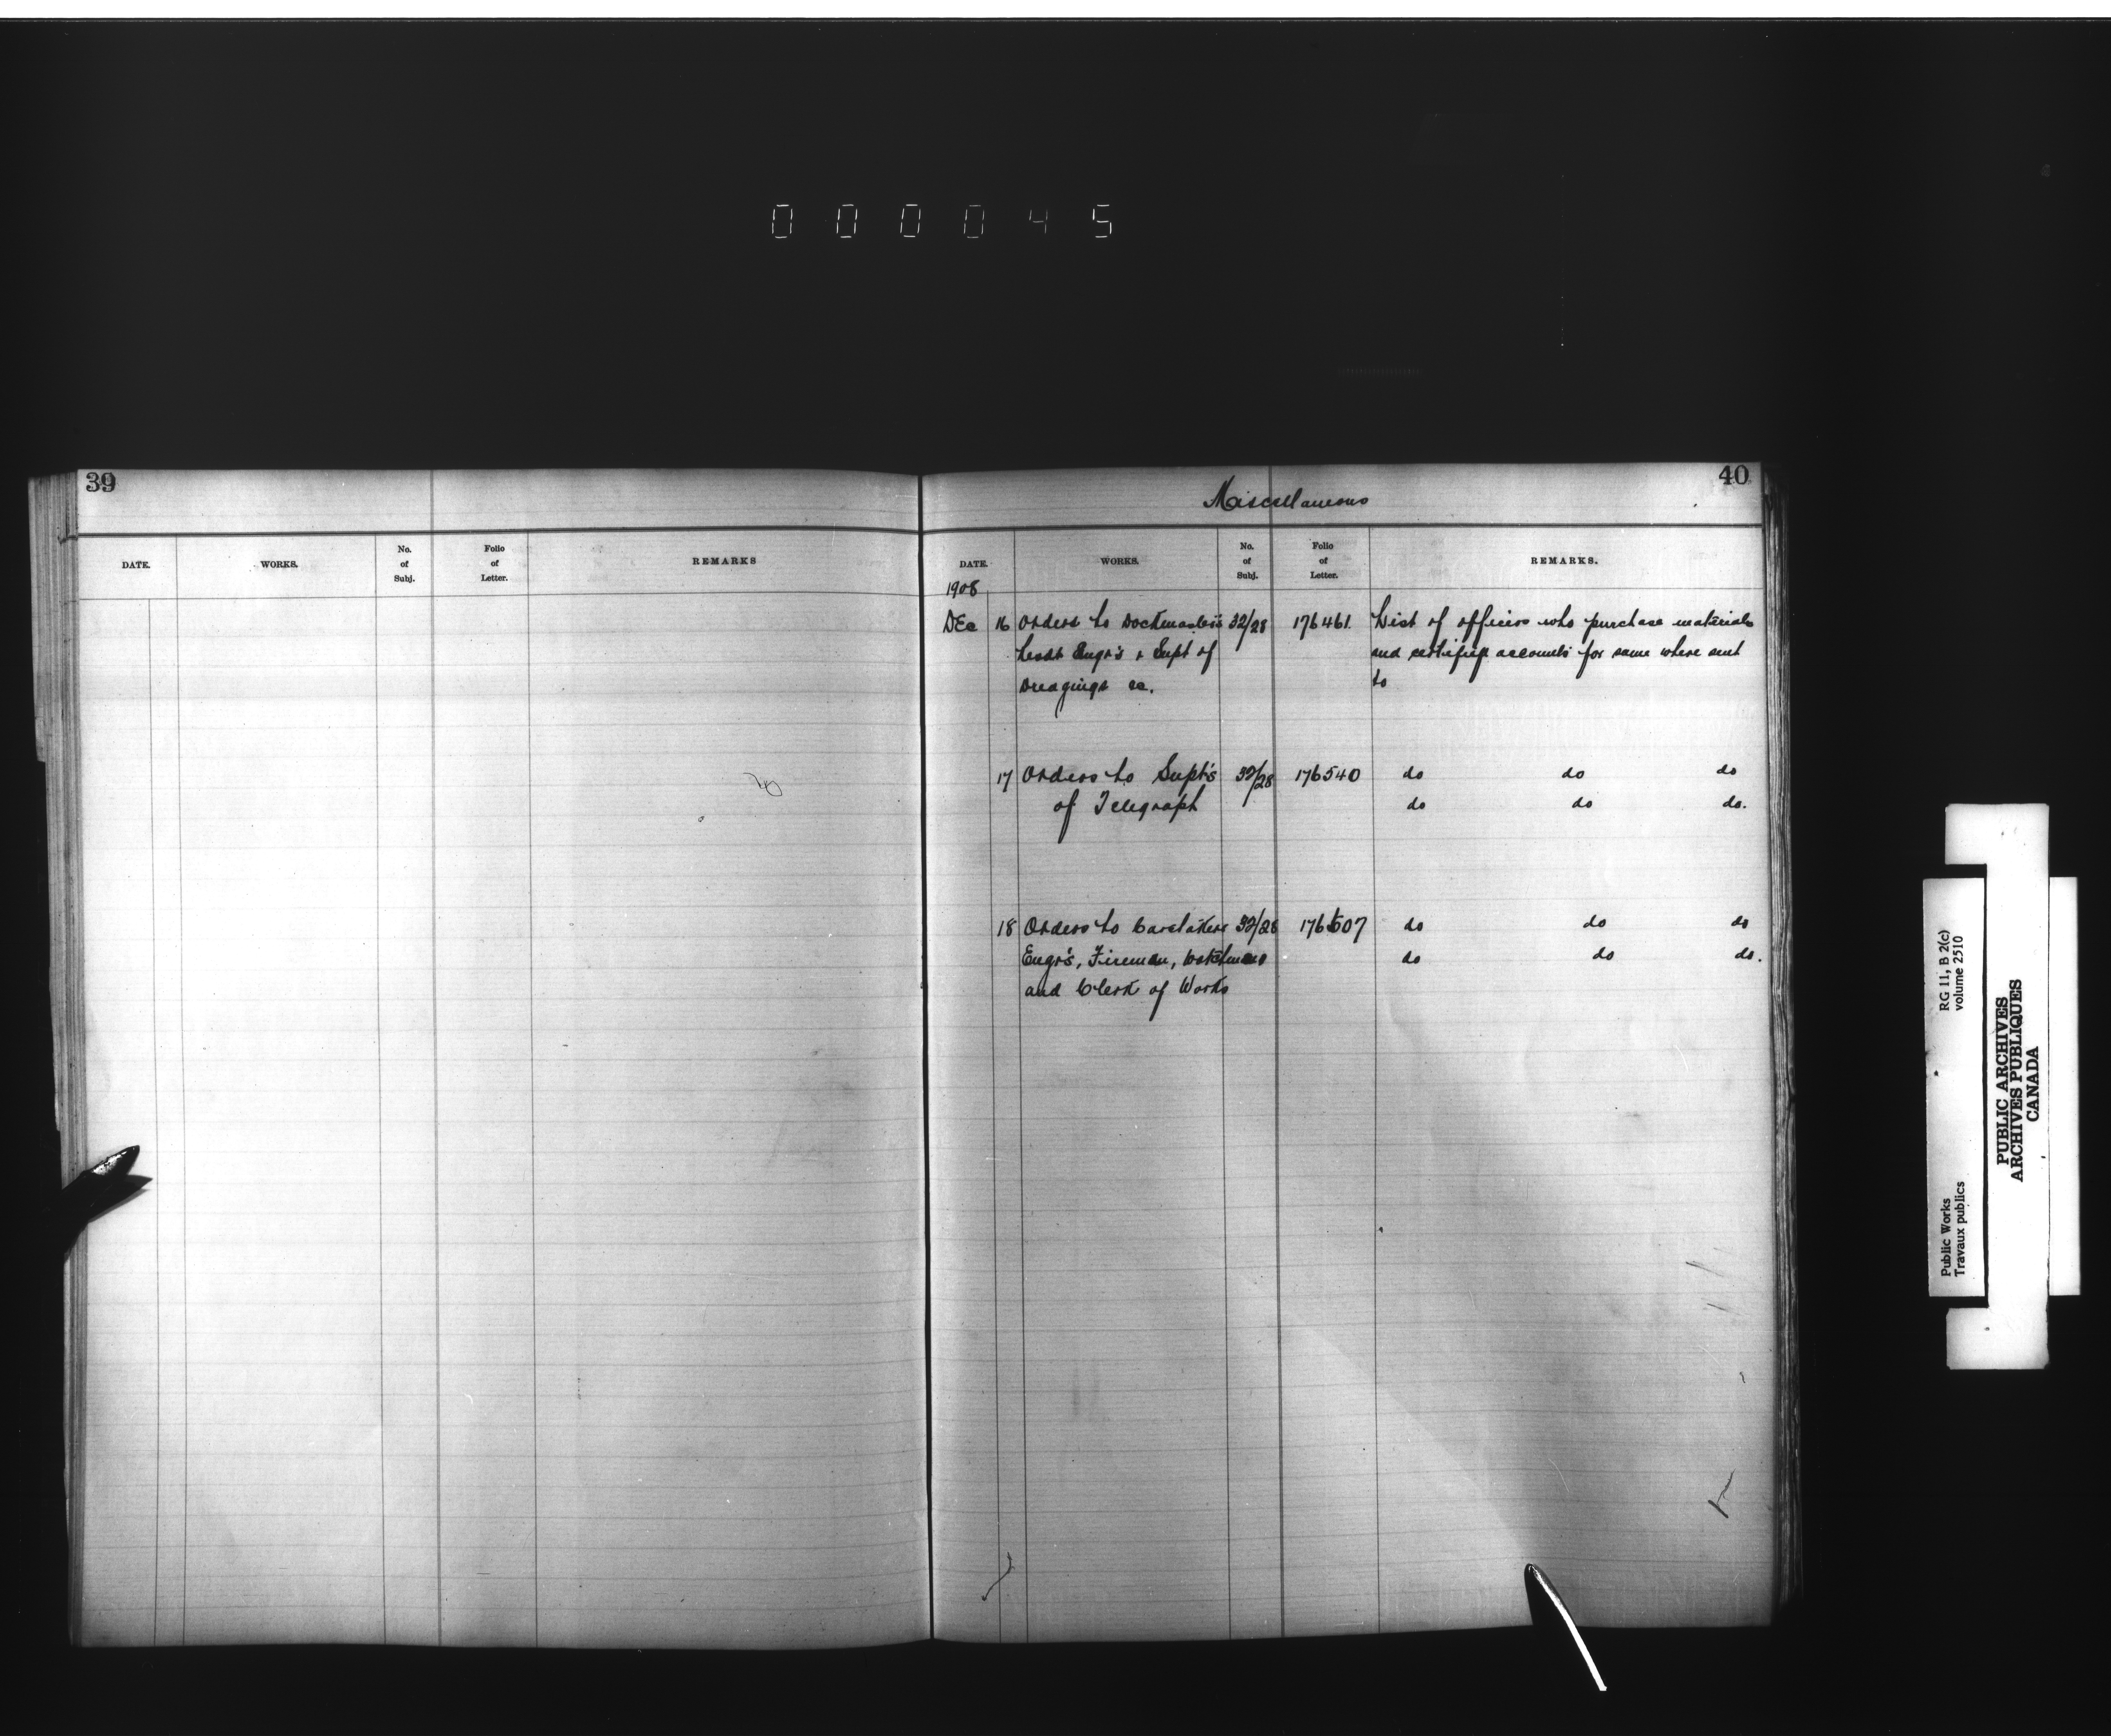 000045
39
DATE. WORKS. No. of Subj. Folio of Letter. REMARKS
40
Miscellaneous
DATE. WORKS. No. of Subj. Folio of Letter. REMARKS.
1908
DEc 16 Orders to Dockmasters 32/28 176461. List of officers who purchase materials
Engr's & Supt of and accounts for same where sent
Dredgings &c. to
17 Orders to Supt's 32/28 176540 do do do
of Telegraph do do do.
18 Orders to Caretakers 32/28 176507 do do do
Engr's, Fireman, Watchmen do do do.
and Clerk of Works
RG 11, B 2(c)
volume 2510
Public Works
Travaux publics
PUBLIC ARCHIVES
ARCHIVES PUBLIQUES
CANADA